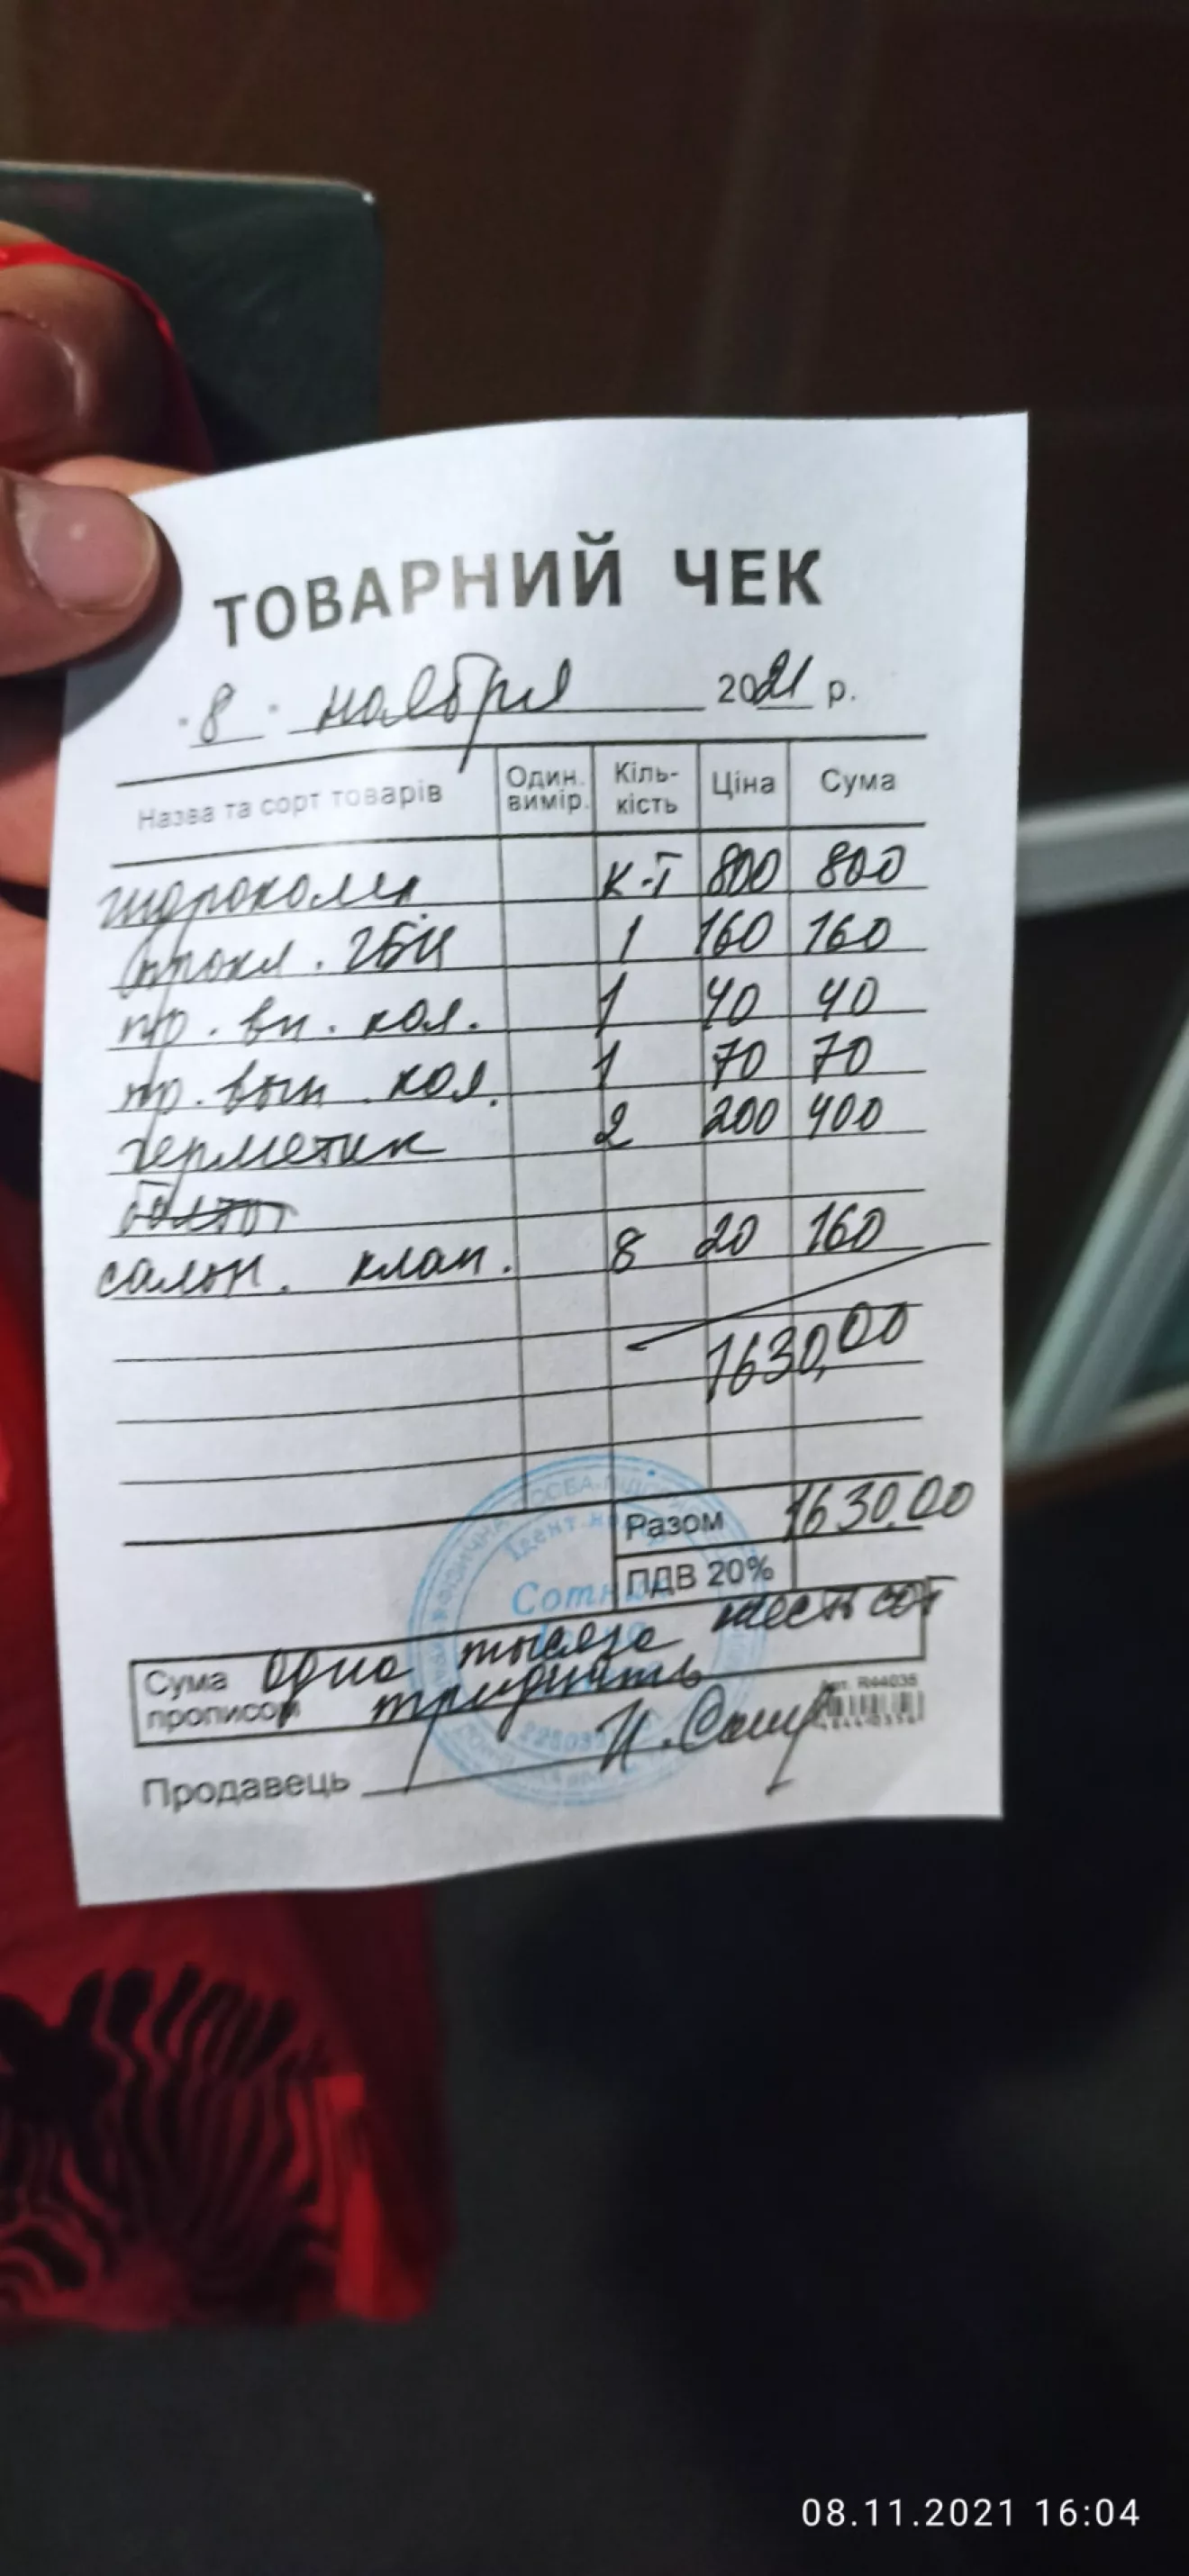 ТОВАРНИЙ ЧЕК
"8" ноября 2021 р.
Назва та сорт товарів Один. вимір. Кіль-кість Ціна Сума
гидроком к-т 800 800
прокл. ГБЦ 1 160 160
пр. вп. кол. 1 40 40
пр. вып кол. 1 70 70
герметик 2 200 400
болты
сальн. клап. 8 20 160
1630,00
Разом 1630.00
ПДВ 20%
Сума прописом Одна тысяча шестьсот
тридцать
Продавець
R44036
08.11.2021 16:04